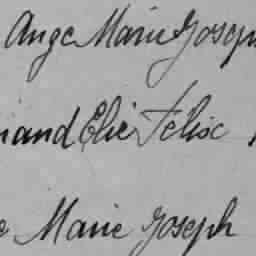 Ange Marie Joseph
and Elie Felix
Marie Joseph